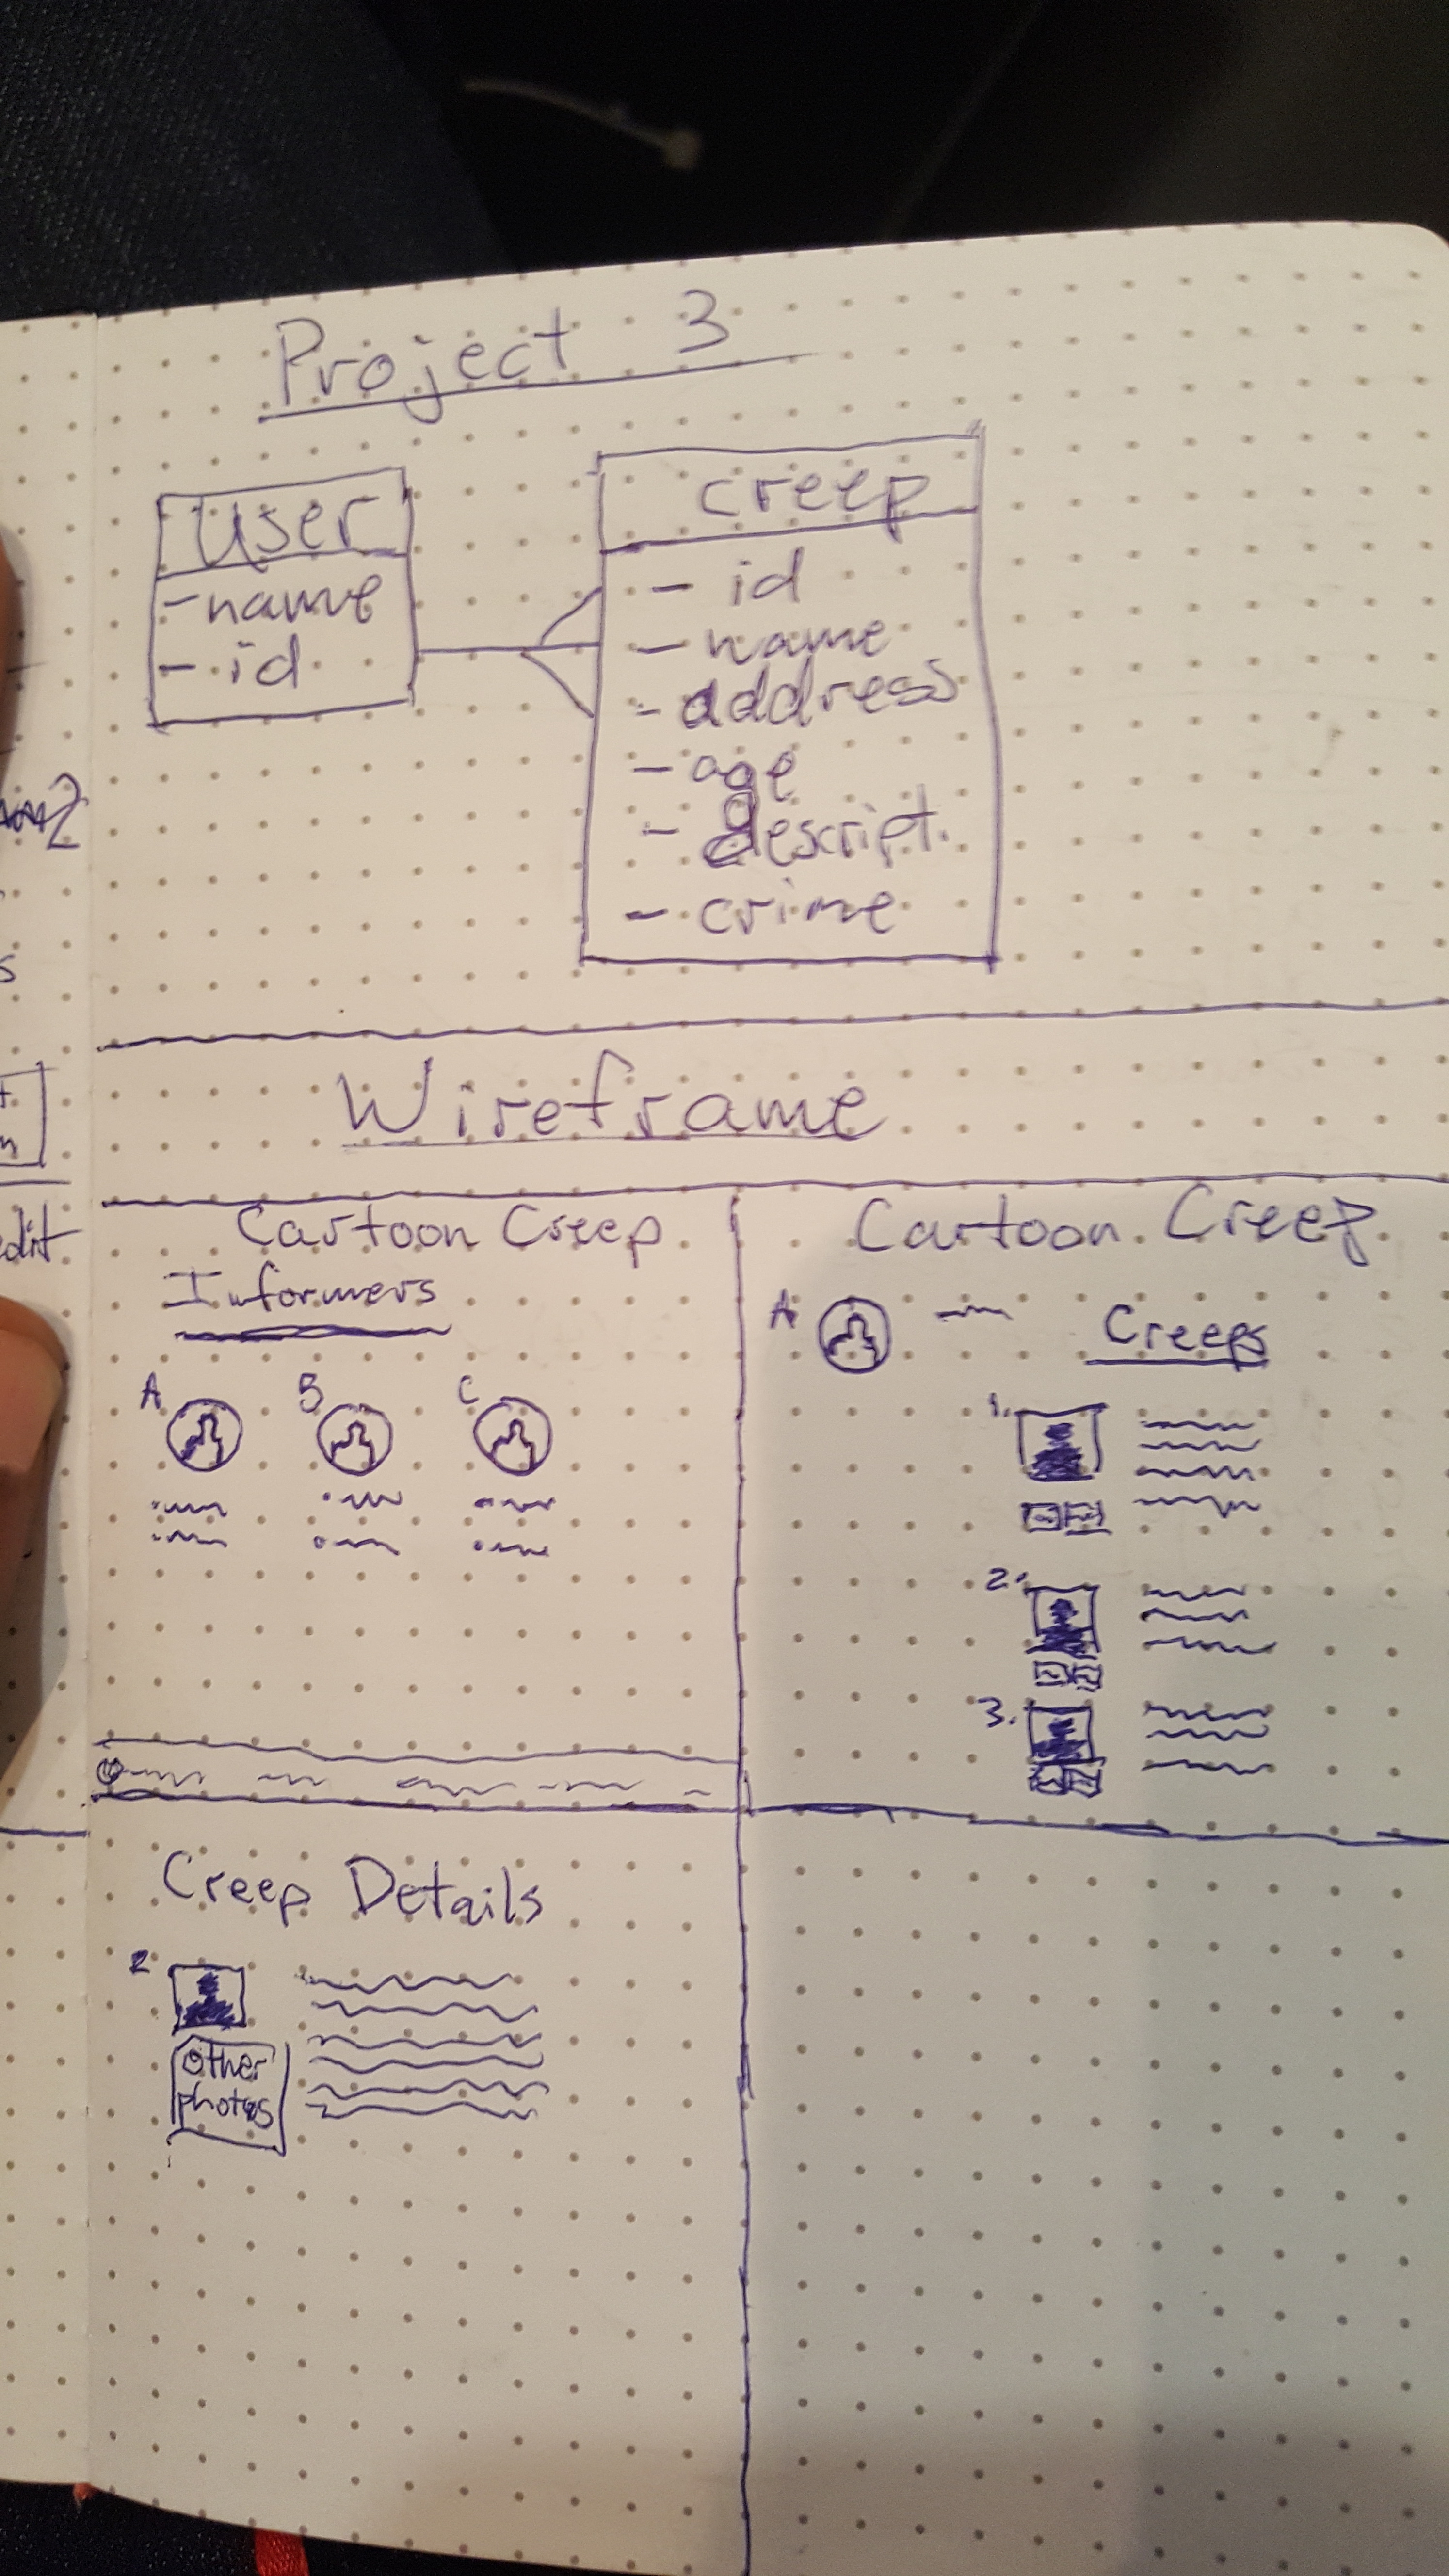 Project 3
User
- name
- id
creep
- id
- name
- address
- age
- descript.
- crime
Wireframe
Cartoon Creep
Informers
A B C
Cartoon Creep
A
Creeps
1.
2.
3.
Creep Details
2
other
photos
edit